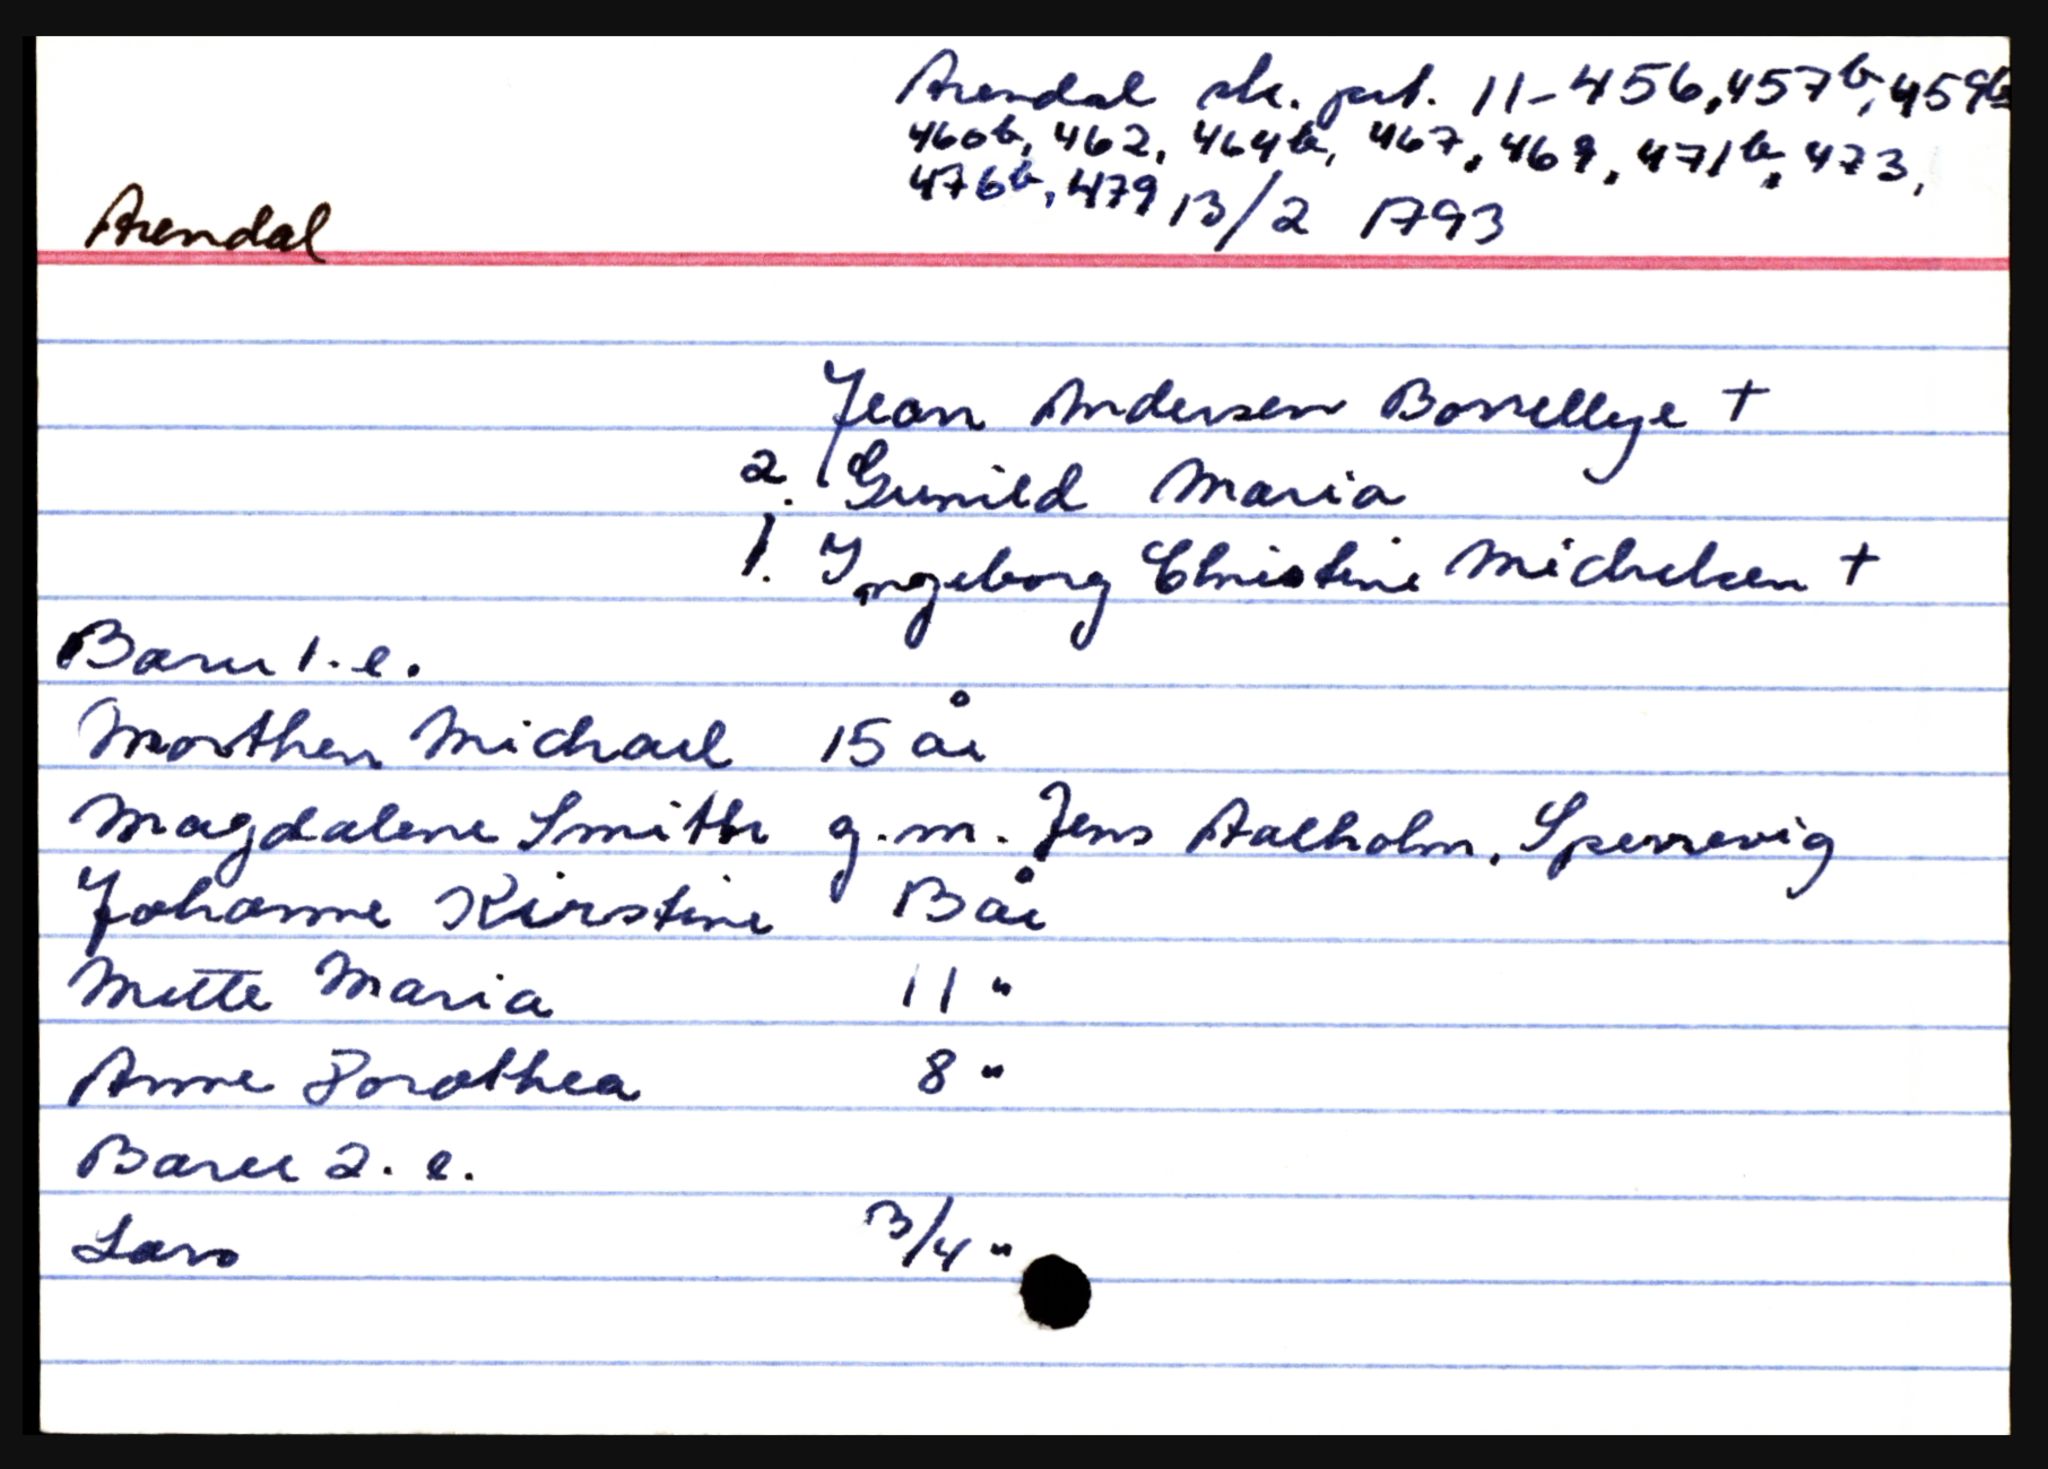 Arendal sk. prt. 11-456, 457b, 459b
460b, 462, 464b, 467, 469, 471b, 473,
476b, 479 13/2 1793
Arendal
Jean Andersen Bonellye +
2. Gunild Maria
1. Ingeborg Christine Michelsen +
Barn 1. e.
Morthen Michael 15 år
Magdalene Smith g. m. Jens Aalholm, Sperrevig
Johanne Kirstine 13 år
Mette Maria 11 "
Anne Dorothea 8 "
Barn 2. e.
Lars 3/4 "